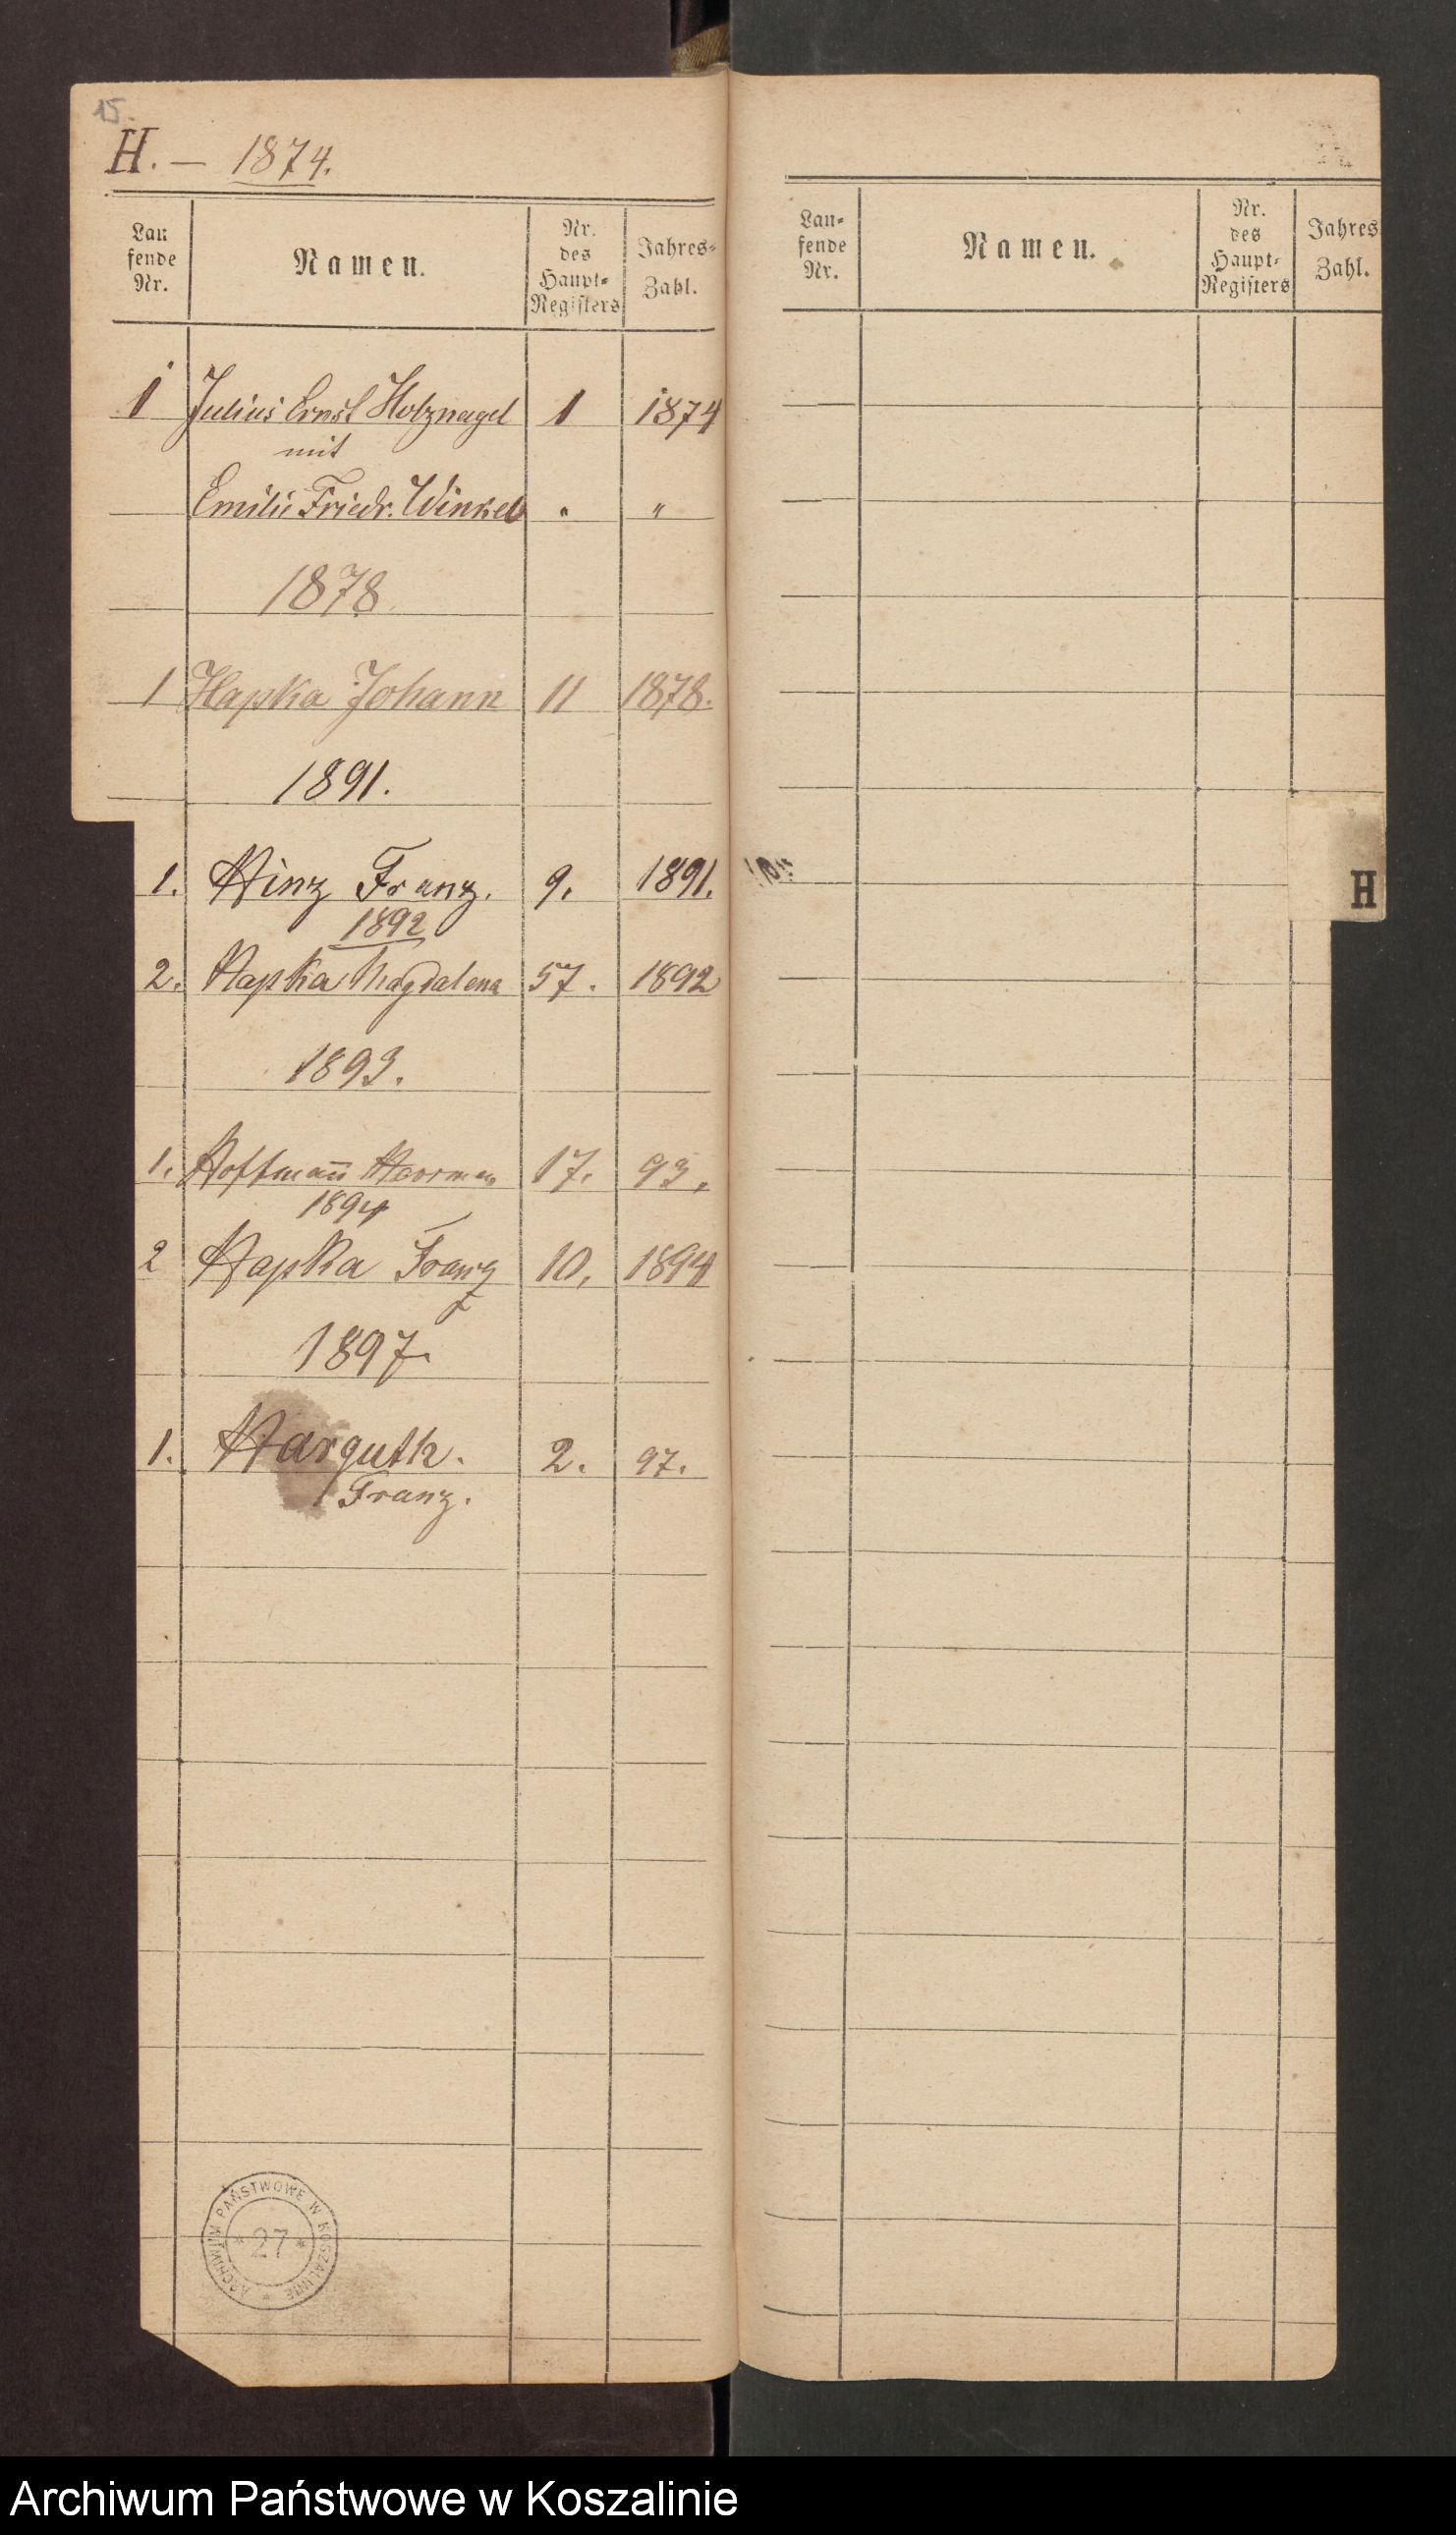 15.
H. — 1874.
Lau
fende
Nr.
Namen.
Nr.
des
Haupt-
Registers
Jahres-
Zahl.
1 Julius Ernst Holznagel 1 1874
mit
Emilie Friedr. Winkel " "
1878
1 Hapka Johann 11 1878.
1891.
1. Hinz Franz. 9. 1891.
1892
2. Hapka Magdalena 57. 1892
1893.
1. Hoffmann 17. 93.
1894
2 Hapka Franz 10. 1894
1897.
1. Harguth. 2. 97.
Franz.
ARCHIWUM PAŃSTWOWE W KOSZALINIE
* 27 *
Lau-
fende
Nr.
Namen.
Nr.
des
Haupt-
Registers
Jahres
Zahl.
H
Archiwum Państwowe w Koszalinie